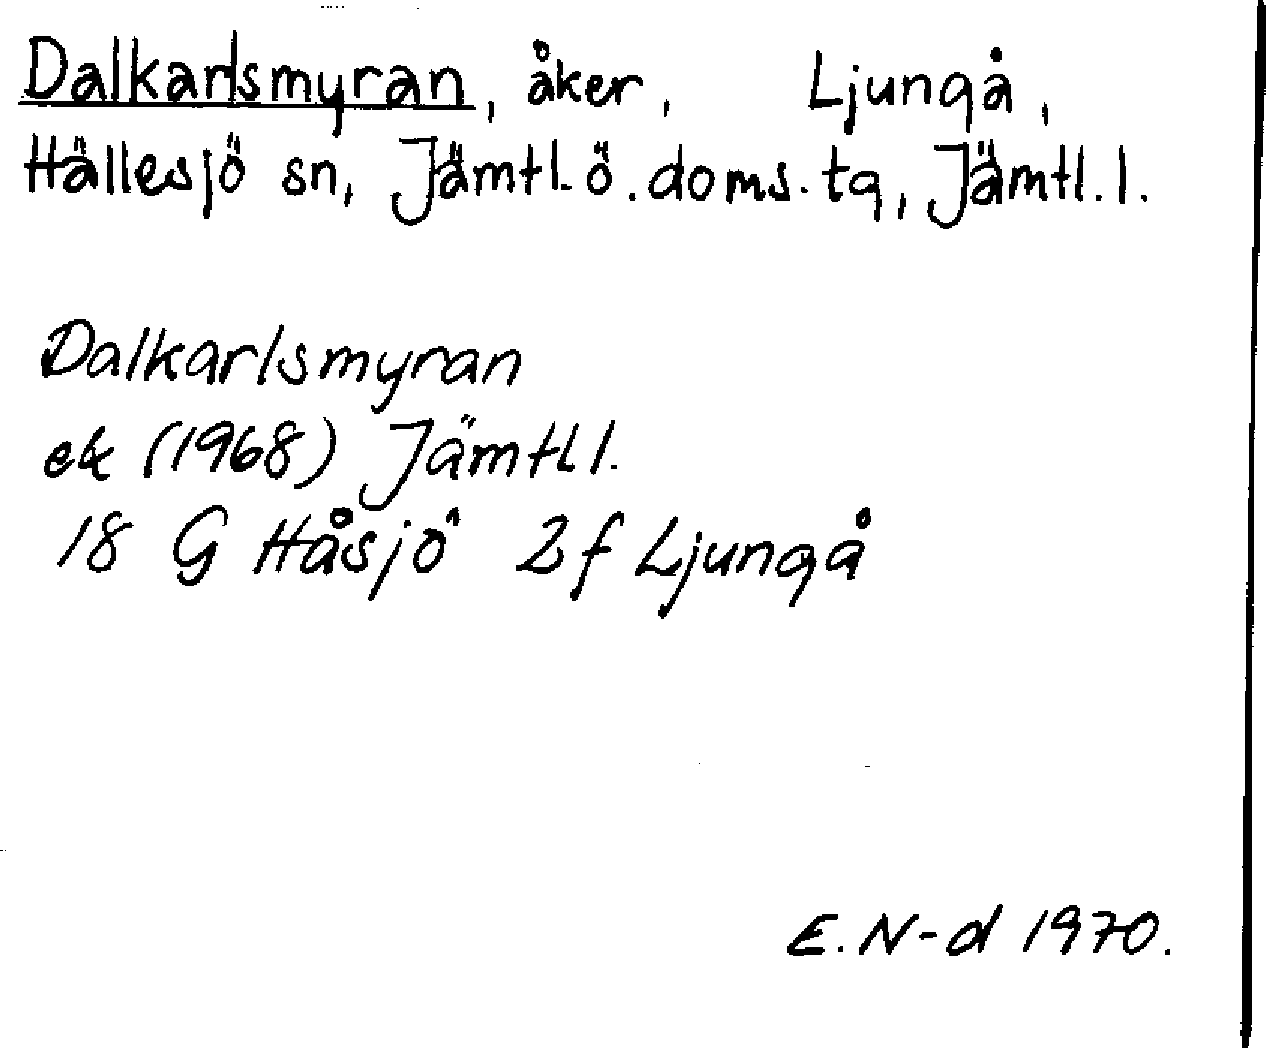 Dalkarlsmyran, åker, Ljungå,
Hällesjö sn, Jämtl. ö. doms. tg, Jämtl. l.
Dalkarlsmyran
ek (1968) Jämtl l.
18 G Håsjö 2f Ljungå
E. N-d 1970.